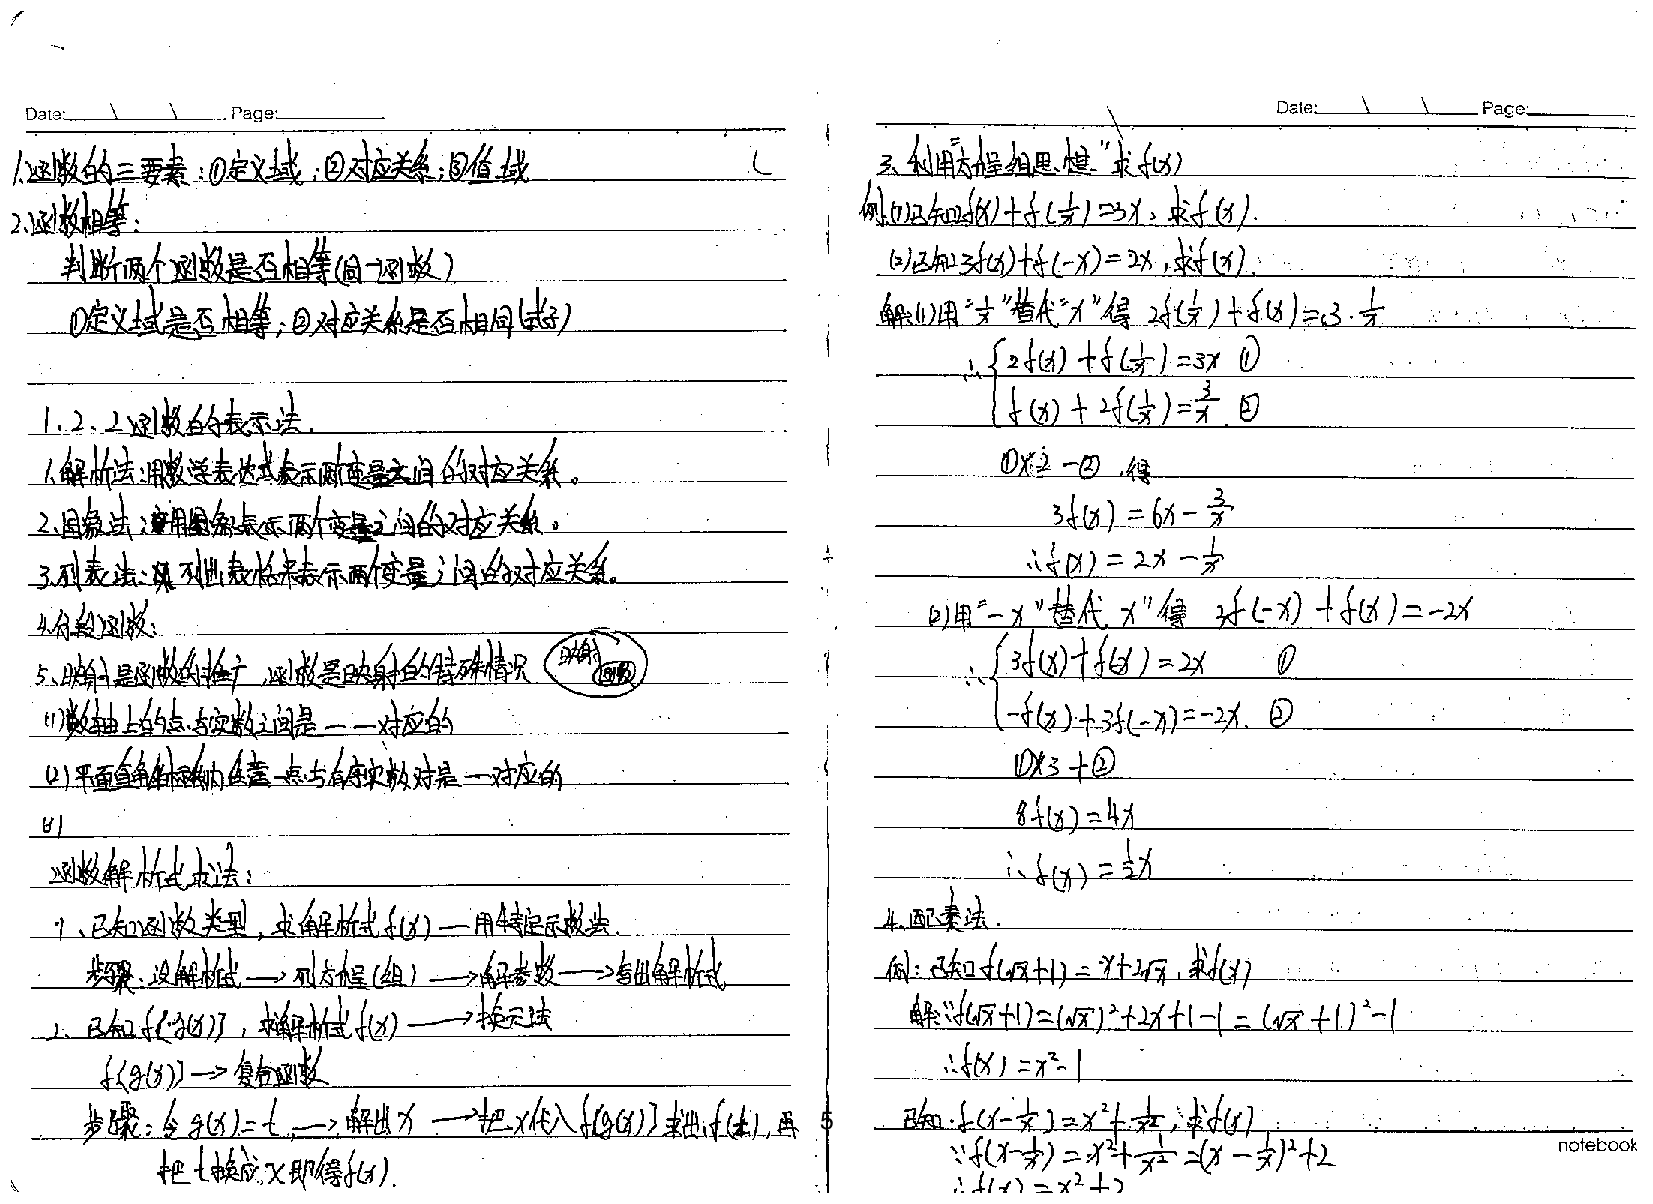 Date: \ \ Page:
1.函数的三要素:①定义域;②对应关系;③值域
2.函数相等:
判断两个函数是否相等(同一函数)
①定义域是否相等;②对应关系是否相同(式子)
1.2.2函数的表示法.
1.解析法:用数学表达式表示两变量之间的对应关系。
2.图象法:用图象表示两个变量之间的对应关系。
3.列表法:列出表格来表示两个变量之间的对应关系。
4.分段函数:
5.映射是函数的推广,函数是映射的特殊情况 映射 函数
(1)数轴上的点与实数之间是一一对应的
(2)平面直角坐标系内任意一点与有序实数对是一一对应的
函数解析式求法:
1、已知函数类型,求解析式f(x)—用待定系数法.
步骤:设解析式→列方程(组)→解参数→写出解析式
2、已知f[g(x)],求解析式f(x)→换元法
f[g(x)]→复合函数
步骤:令g(x)=t→解出x→把x代入f[g(x)]求出f(t),再
把t换成x即得f(x).
Date: \ \ Page:
3.利用"方程组思想"求f(x)
例:(1)已知2f(x)+f(1/x)=3x,求f(x).
(2)已知3f(x)+f(-x)=2x,求f(x).
解:(1)用"1/x"替代"x"得 2f(1/x)+f(x)=3·1/x
∴{2f(x)+f(1/x)=3x ①
f(x)+2f(1/x)=3/x. ②
①×2-②,得
3f(x)=6x-3/x
∴f(x)=2x-1/x
(2)用"-x"替代"x"得 3f(-x)+f(x)=-2x
∴{3f(x)+f(x)=2x ①
-f(x)+3f(-x)=-2x. ②
①×3+②
8f(x)=4x
∴f(x)=1/2x
4.配凑法.
例:已知f(√x+1)=x+2√x,求f(x)
解:∵f(√x+1)=(√x)²+2x+1-1=(√x+1)²-1
∴f(x)=x²-1
已知:f(x-1/x)=x²+1/x²,求f(x)
∵f(x-1/x)=x²+1/x²=(x-1/x)²+2
∴f(x)=x²+2
notebook